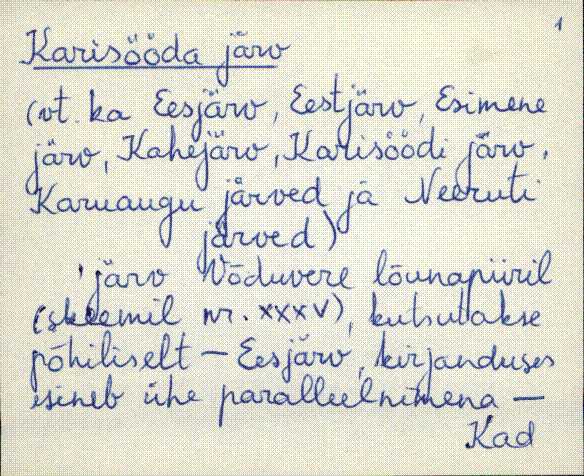 1
Karisööda järv
(vt. ka Eesjärv, Eestjärv, Esimene
järv, Kahejärv, Karisöödi järv,
Karuaugu järved ja Neeruti
järved)
'järv Võduvere lõunapiiril
(skeemil nr. XXXV), kutsutakse
põhiliselt – Eesjärv, kirjanduses
esineb ühe paralleelnimena –
Kad